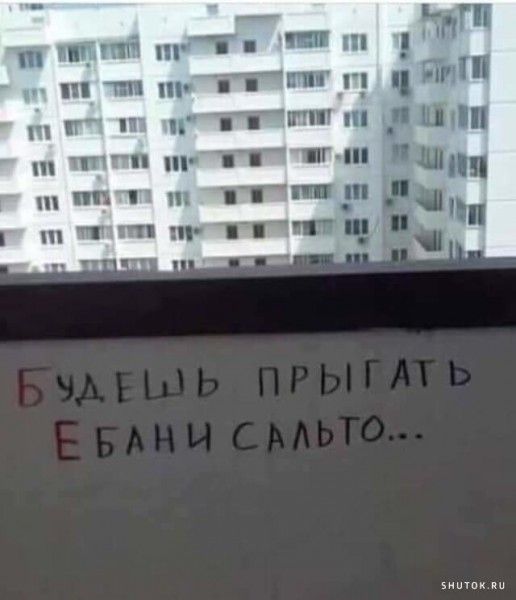 БУДЕШЬ ПРЫГАТЬ
ЕБАНИ САЛЬТО...
SHUTOK.RU